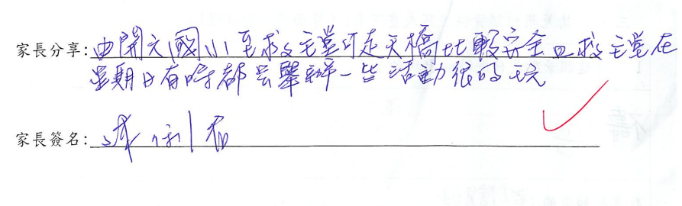 家長分享:由開元國小至救主堂可走天橋比較安全且救主堂在
星期日有時都會舉辦一些活動很好玩
家長簽名: